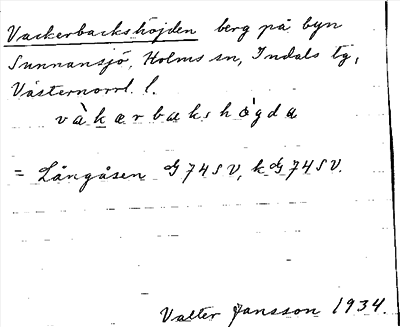 Vackerbackshöjden berg på byn
Sunnansjö, Holms sn, Indals tg,
Västernorrl. l.
vàkærbakshøgda
= Långåsen G 74 SV, k G 74 SV.
Valter Jansson 1934.